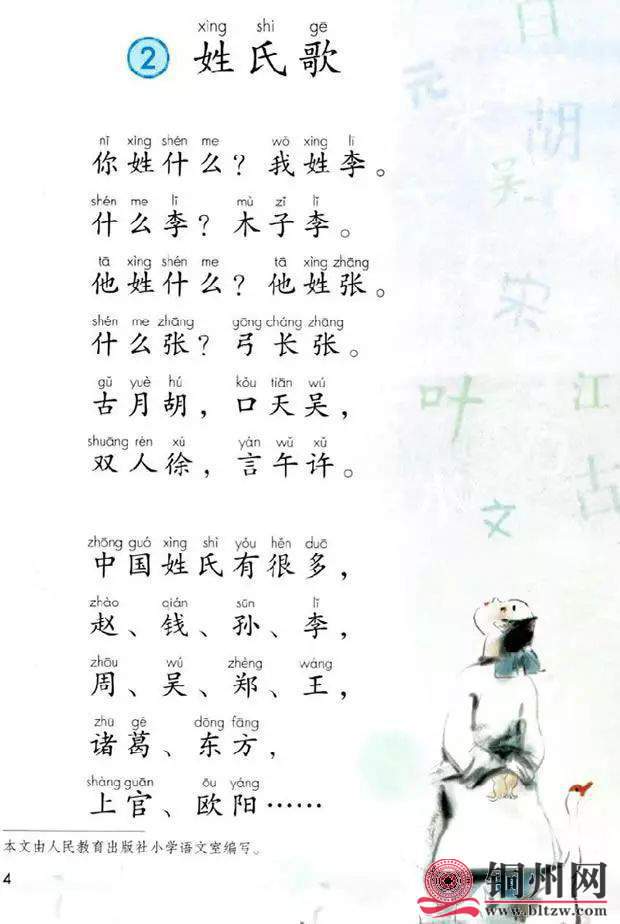 xìng shì gē
2 姓氏歌
nǐ xìng shén me wǒ xìng lǐ
你姓什么？我姓李。
shén me lǐ mù zǐ lǐ
什么李？木子李。
tā xìng shén me tā xìng zhāng
他姓什么？他姓张。
shén me zhāng gōng cháng zhāng
什么张？弓长张。
gǔ yuè hú kǒu tiān wú
古月胡，口天吴，
shuāng rén xú yán wǔ xǔ
双人徐，言午许。
zhōng guó xìng shì yǒu hěn duō
中国姓氏有很多，
zhào qián sūn lǐ
赵、钱、孙、李，
zhōu wú zhèng wáng
周、吴、郑、王，
zhū gě dōng fāng
诸葛、东方，
shàng guān ōu yáng
上官、欧阳……
本文由人民教育出版社小学语文室编写。
4
元
胡
吴
宋
叶
江
古
文
铜州网
www.bltzw.com